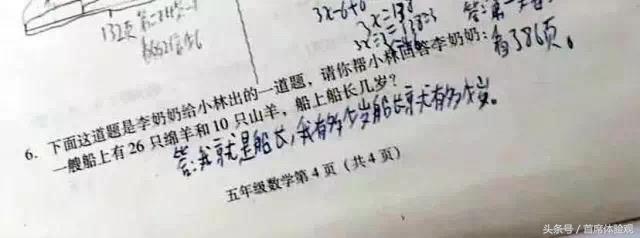 132页
3x-6+6
3x=138
3x÷3=138÷3
看了86页。
6. 下面这道题是李奶奶给小林出的一道题，请你帮小林回答李奶奶：
一艘船上有 26 只绵羊和 10 只山羊，船上船长几岁？
答:我就是船长,我有多少岁船长就有多少岁。
五年级数学第 4 页（共 4 页）
头条号 / 首席体验观